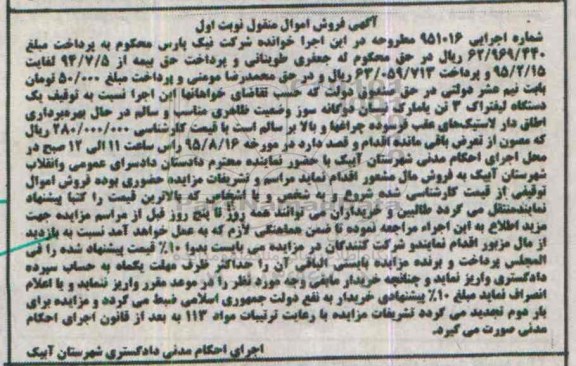 آگهی فروش اموال منقول نوبت اول
شماره اجرایی ۹۵۱۰۱۶ مطروحه در این اجرا خوانده شرکت نیک پارس محکوم به پرداخت مبلغ
۶۲/۹۶۹/۳۴۰ ریال در حق محکوم له جعفری طوبنانی و پرداخت حق بیمه از ۹۴/۷/۵ لغایت
۹۵/۲/۱۵ و پرداخت ۶۳/۰۵۹/۷۱۳ ریال و در حق محمدرضا مومنی و پرداخت مبلغ ۵۰/۰۰۰ تومان
بابت نیم عشر دولتی در حق صندوق دولت که حسب تقاضای خواهانها این اجرا نسبت به توقیف یک
دستگاه لیفتراک ۳ تن یامارک نیسان دوگانه سوز وضعیت ظاهری مناسب و سالم در حال بهره‌برداری
اطاق دار لاستیک‌های عقب فرسوده چراغها و بالا بر سالم است با قیمت کارشناسی ۲۸۰/۰۰۰/۰۰۰ ریال
که مصون از تعرض باقی مانده اقدام و قصد دارد در مورخه ۹۵/۸/۱۶ راس ساعت ۱۱ الی ۱۲ صبح در
محل اجرای احکام مدنی شهرستان آبیک با حضور نماینده محترم دادستان دادسرای عمومی وانقلاب
شهرستان آبیک به فروش مال مشعور اقدام نماید مراسم و تشریفات مزایده حضوری بوده فروش اموال
توقیفی از قیمت کارشناسی شده شروع و به شخص یا اشخاصی که بالاترین قیمت را کتبا پیشنهاد
نمایندمنتقل می گردد طالبین و خریداران می توانند همه روز تا پنج روز قبل از مراسم مزایده جهت
مزید اطلاع به این اجراء مراجعه نموده تا ضمن هماهنگی لازم که به عمل خواهد آمد نسبت به بازدید
از مال مزبور اقدام نمایندو شرکت کنندگان در مزایده می بایست بدوا ۱۰٪ قیمت پیشنهاد شده را فی
المجلس پرداخت و برنده مزایده بایستی الباقی آن را حداکثر ظرف مهلت یکماه به حساب سپرده
دادگستری واریز نماید و چنانچه خریدار مابقی وجه مورد نظر را در موعد مقرر واریز ننماید و یا اعلام
انصراف نماید مبلغ ۱۰٪ پیشنهادی خریدار به نفع دولت جمهوری اسلامی ضبط می گردد و مزایده برای
بار دوم تجدید می گردد تشریفات مزایده با رعایت ترتیبات مواد ۱۱۳ به بعد از قانون اجرای احکام
مدنی صورت می گیرد.
اجرای احکام مدنی دادگستری شهرستان آبیک